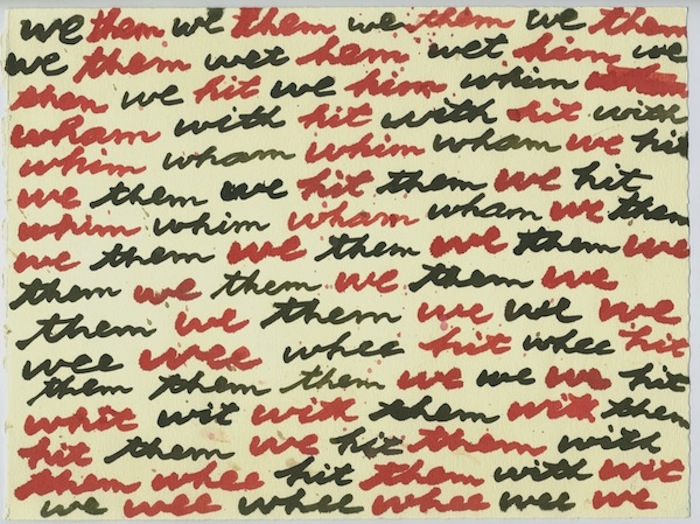 we them we them we them we them
we them wet hem wet him we
them we hit we him whim wham
wham with hit with hit with
whim wham whim wham we hit
we them we hit them we hit
whim whim wham wham we them
we them we them we them we
them we them we them we
them we them we we we
wee wee whee hit whee hit
them them them we we we hit
whit wit with them with them
hit them we hit them with
them whee hit them with wit
we wee whee whee wee we